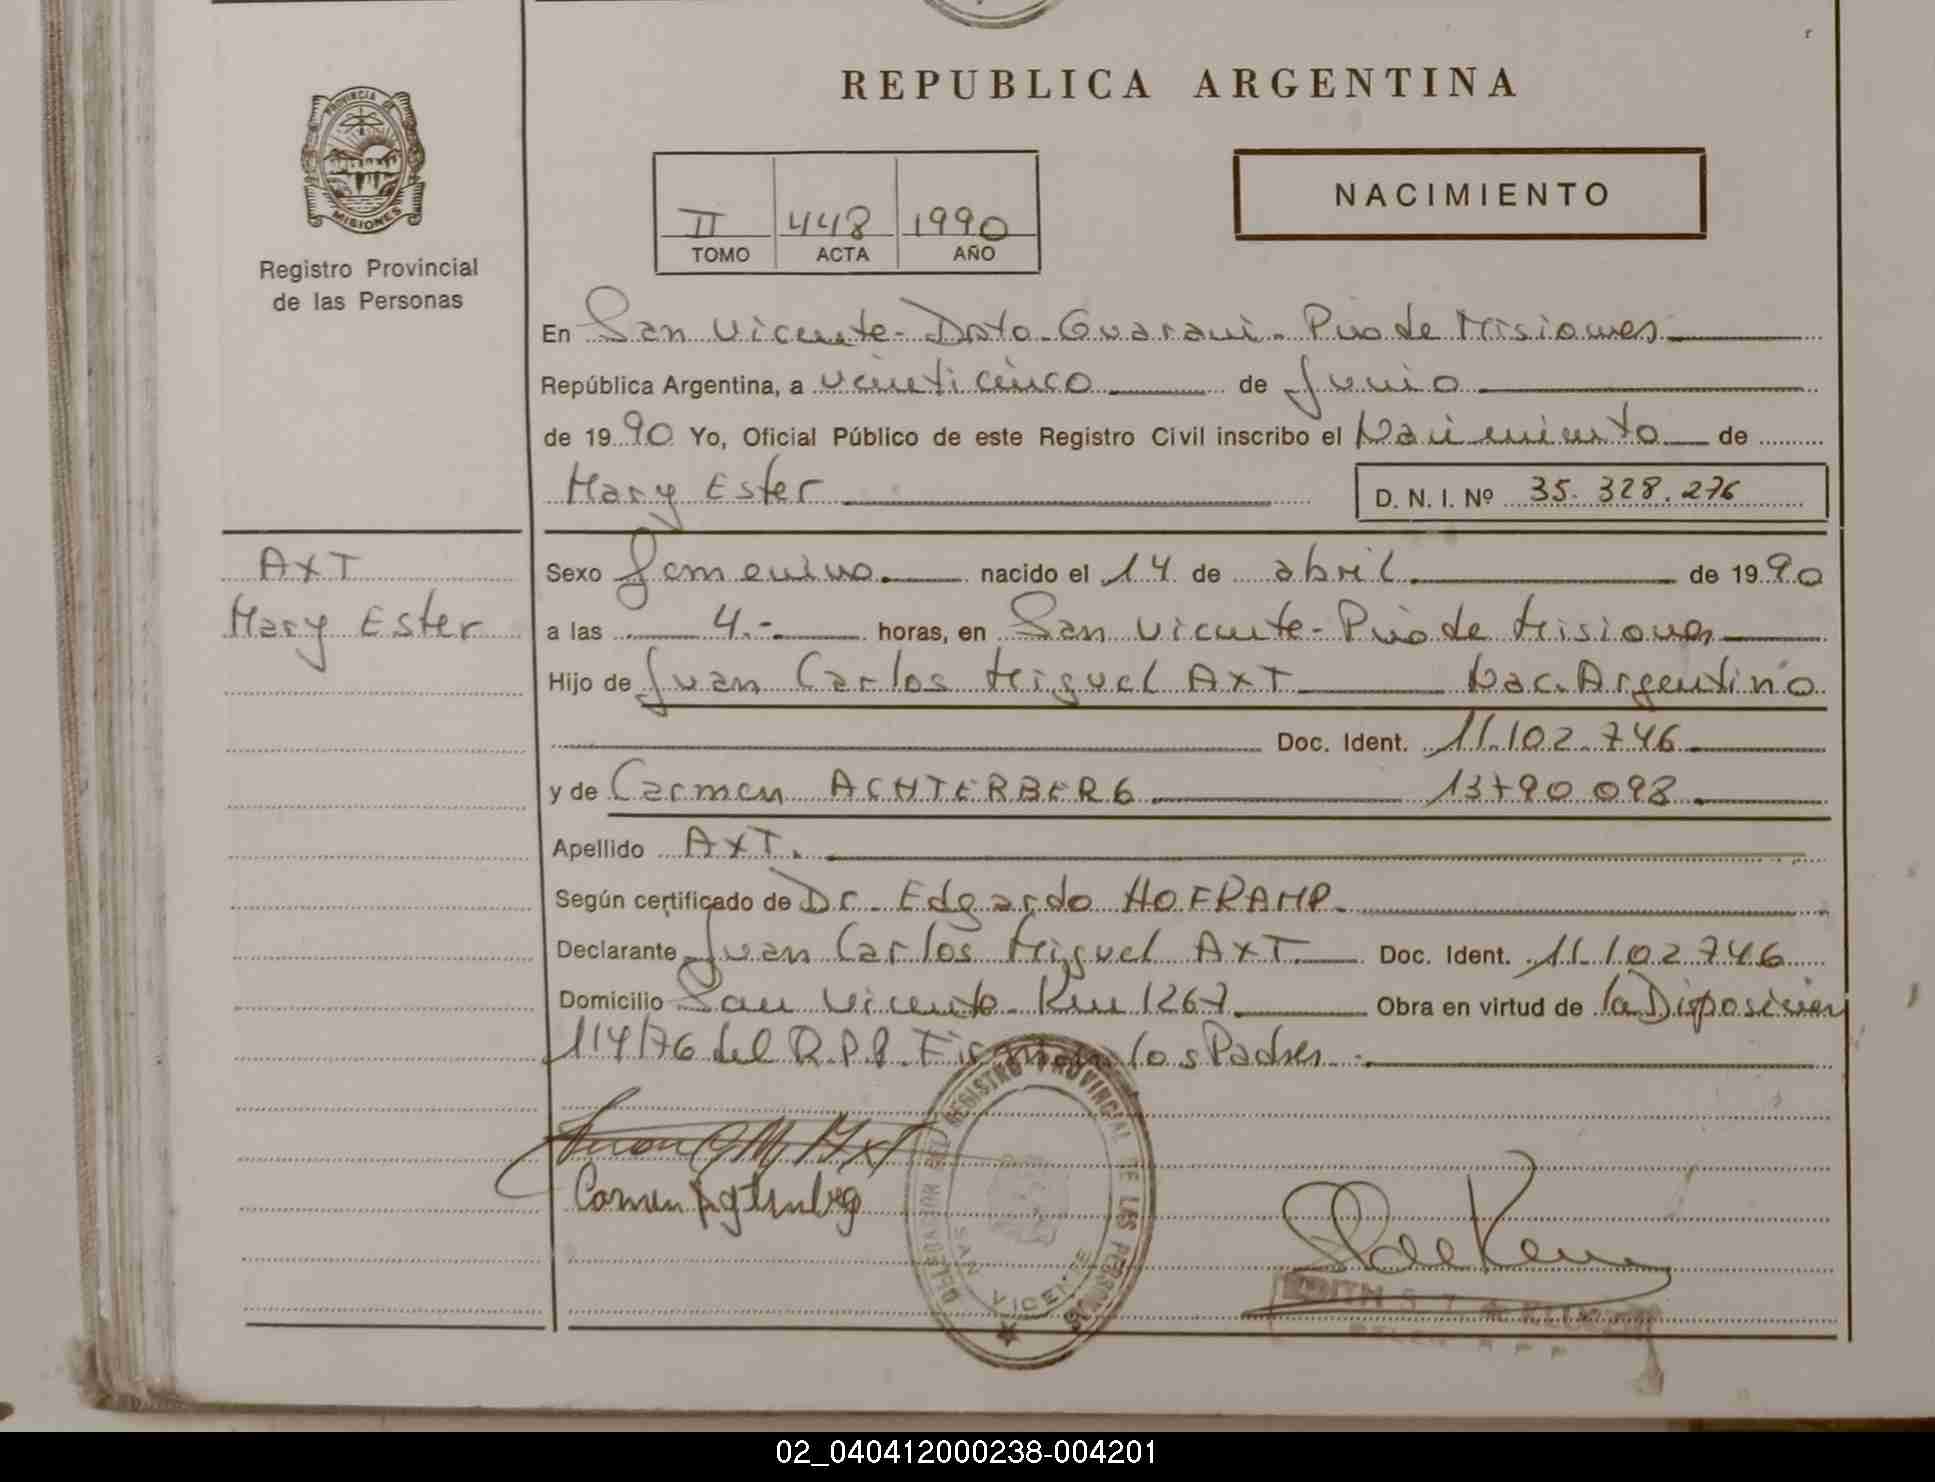 REPUBLICA ARGENTINA
PROVINCIA DE
MISIONES
Registro Provincial
de las Personas
II 448 1990
TOMO ACTA AÑO
NACIMIENTO
En San Vicente - Dpto. Guarani - Pvia de Misiones
República Argentina, a veinticinco de Junio
de 1990 Yo, Oficial Público de este Registro Civil inscribo el Nacimiento de
Mary Ester D. N. I. Nº 35.328.276
AXT
Mary Ester
Sexo femenino nacido el 14 de abril de 1990
a las 4.- horas, en San Vicente - Pvia de Misiones
Hijo de Juan Carlos Miguel AXT Nac. Argentino
Doc. Ident. 11.102.746
y de Carmen ACHTERBERG 13790098
Apellido AXT.
Según certificado de Dr. Edgardo HOFRAMP.
Declarante Juan Carlos Miguel AXT. Doc. Ident. 11.102.746
Domicilio San Vicente - Km 1267. Obra en virtud de la Disposicion
114/76 del R.P.P. Firman los Padres.
DELEGACION DEL REGISTRO PROVINCIAL DE LAS PERSONAS
SAN VICENTE
Carmen
02_040412000238-004201